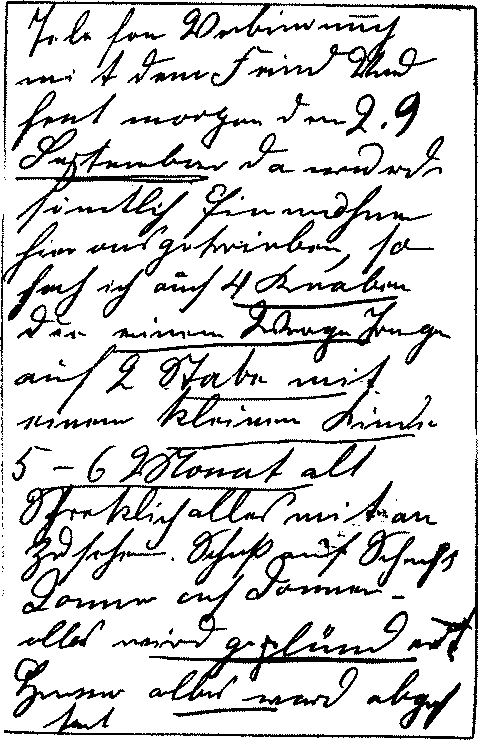 Tele fon Verbindung
mit dem Feind Und
heut morgen den 2.9
September da wurde
sämtlich Einwohner
hier ausgetrieben, so
sah ich auch 4 Knaben
die einem Wage
auf 2 Stabe mit
einem kleinen Kinde
5 - 6 Monat alt
Schreklich alles mit an
zu sehen. Schuß auf Schuß
Donner auf Donner -
alles wird geplündert
Hunner alles ward abge